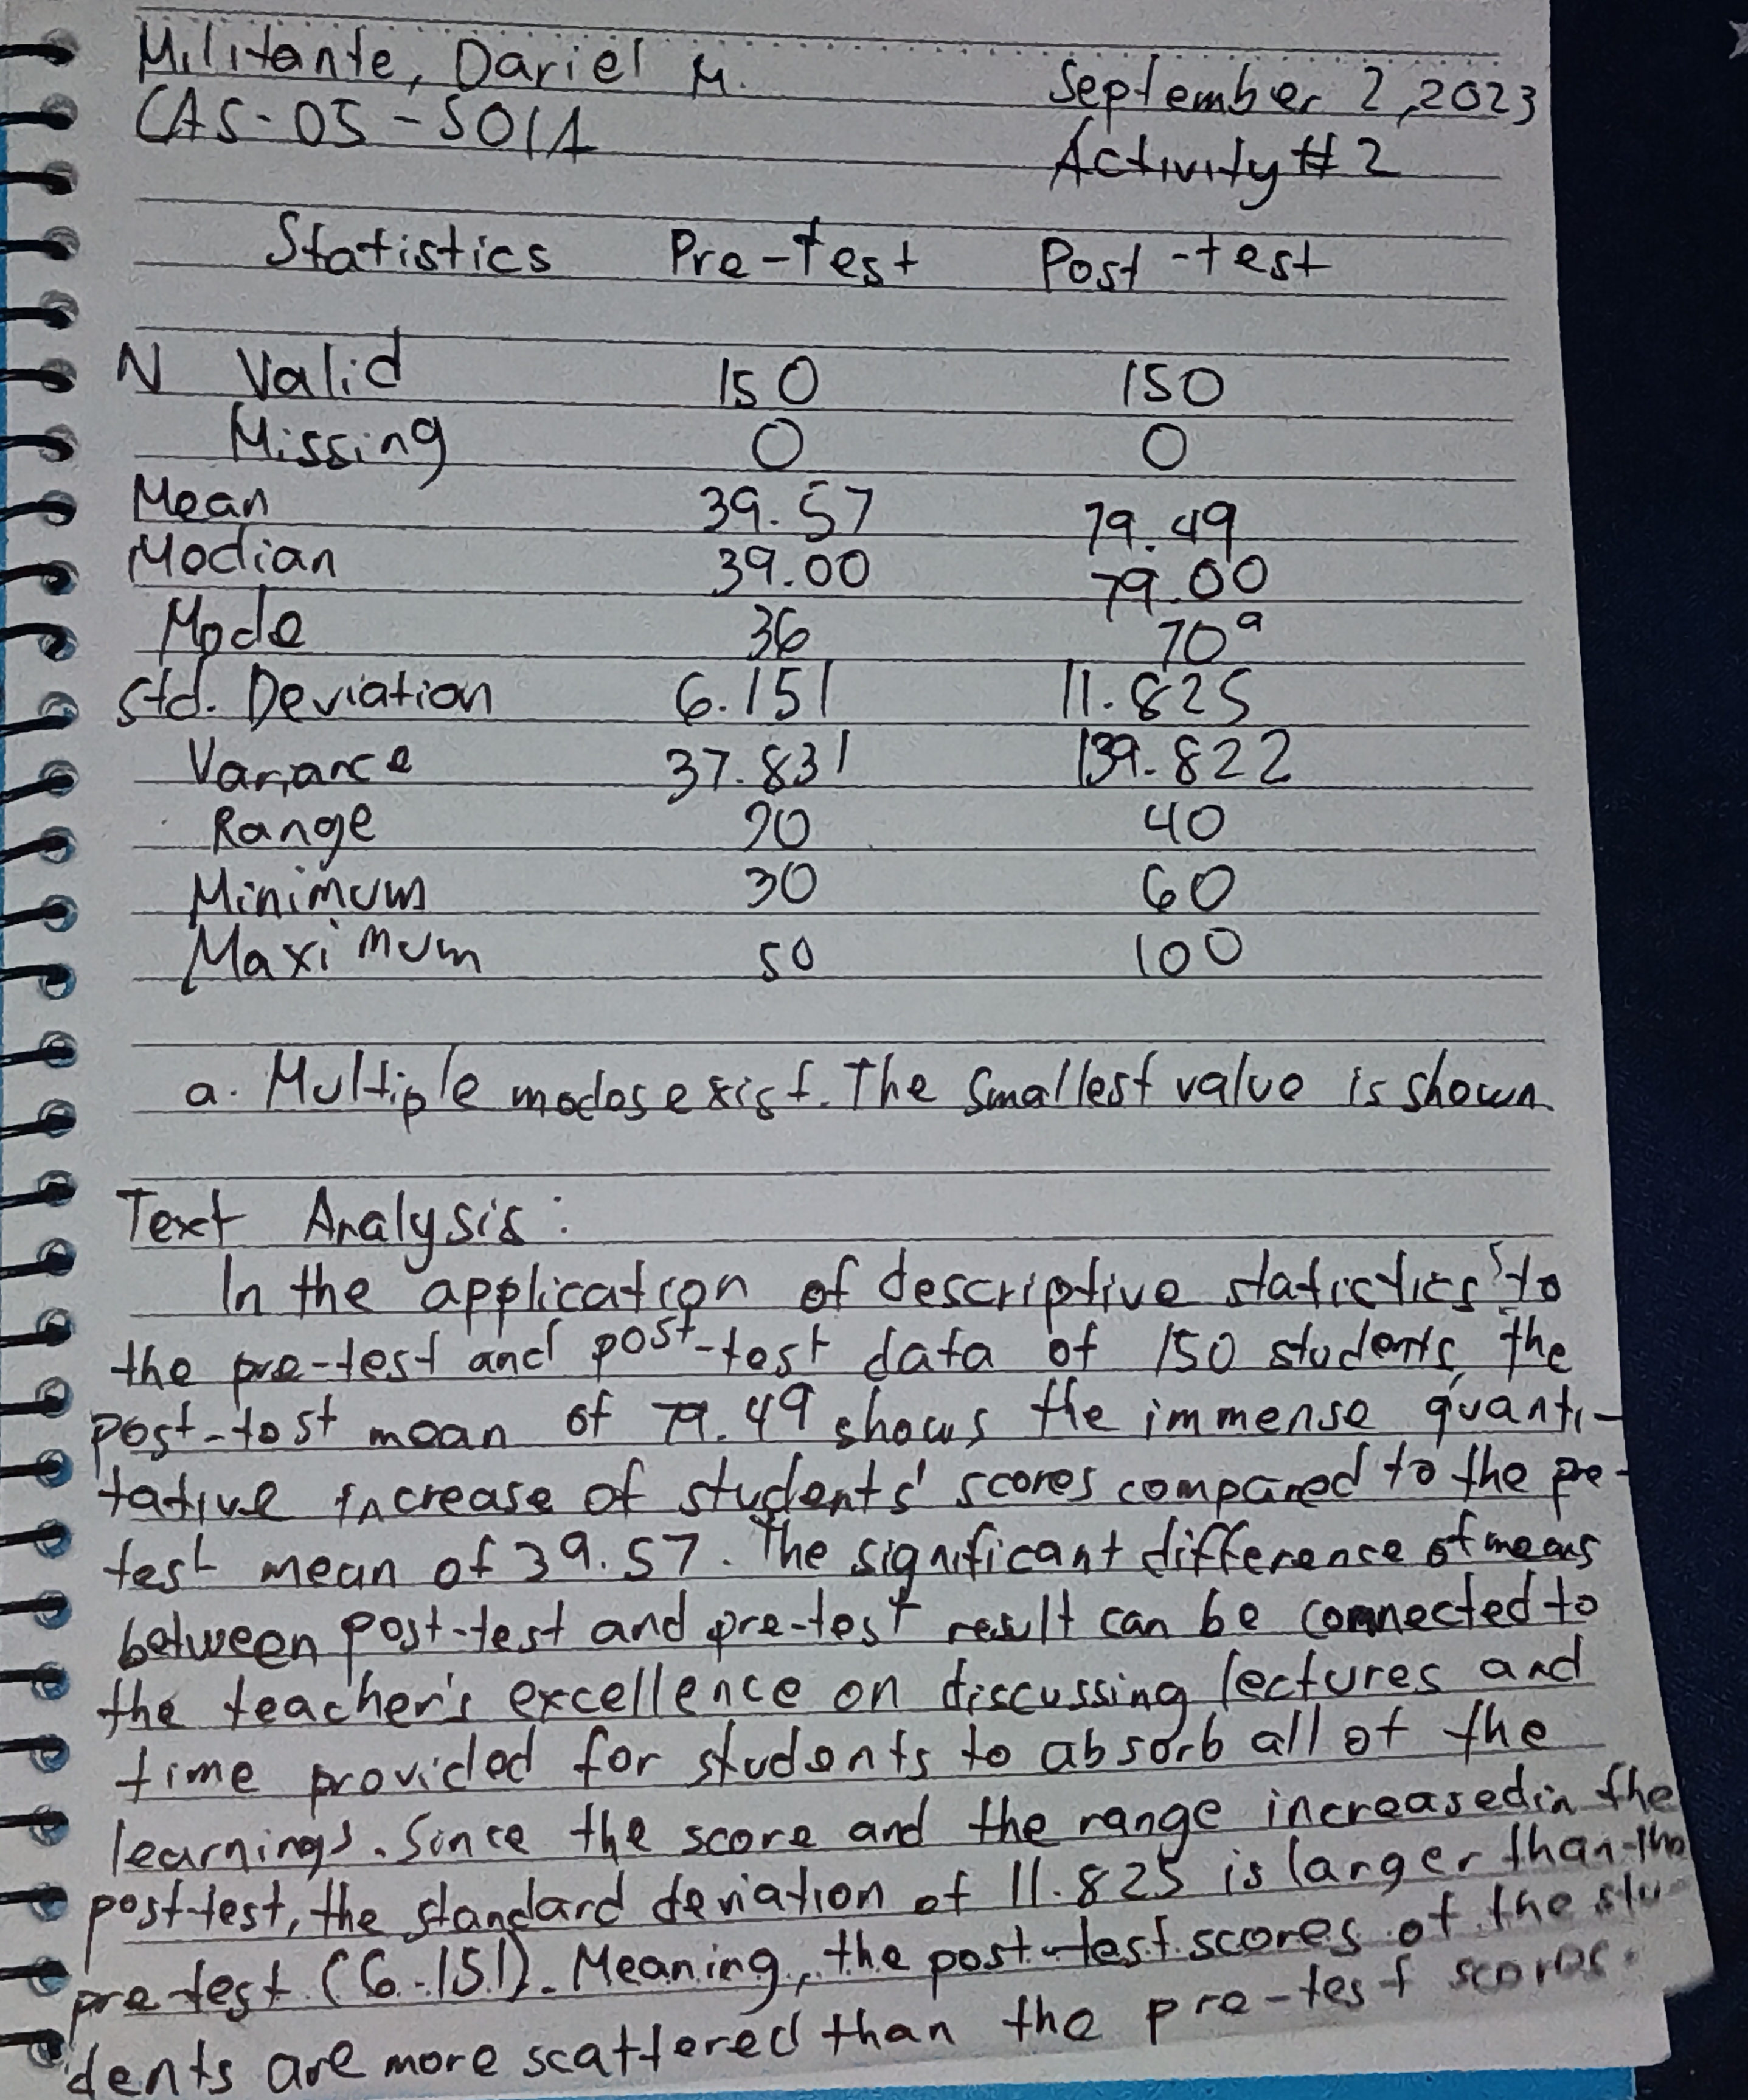 Militante, Dariel M.
September 2, 2023
CAS-05-501A
Activity #2
Statistics Pre-test Post-test
N Valid 150 150
Missing 0 0
Mean 39.57 79.49
Median 39.00 79.00
Mode 36 70ᵃ
Std. Deviation 6.151 11.825
Variance 37.831 139.822
Range 20 40
Minimum 30 60
Maximum 50 100
a. Multiple modes exist. The smallest value is shown.
Text Analysis:
In the application of descriptive statistics to
the pre-test and post-test data of 150 students, the
post-test mean of 79.49 shows the immense quanti-
tative increase of students' scores compared to the pre-
test mean of 39.57. The significant difference of means
between post-test and pre-test result can be connected to
the teacher's excellence on discussing lectures and
time provided for students to absorb all of the
learnings. Since the score and the range increased in the
post-test, the standard deviation of 11.825 is larger than the
pre-test (6.151). Meaning, the post-test scores of the stu-
dents are more scattered than the pre-test scores.